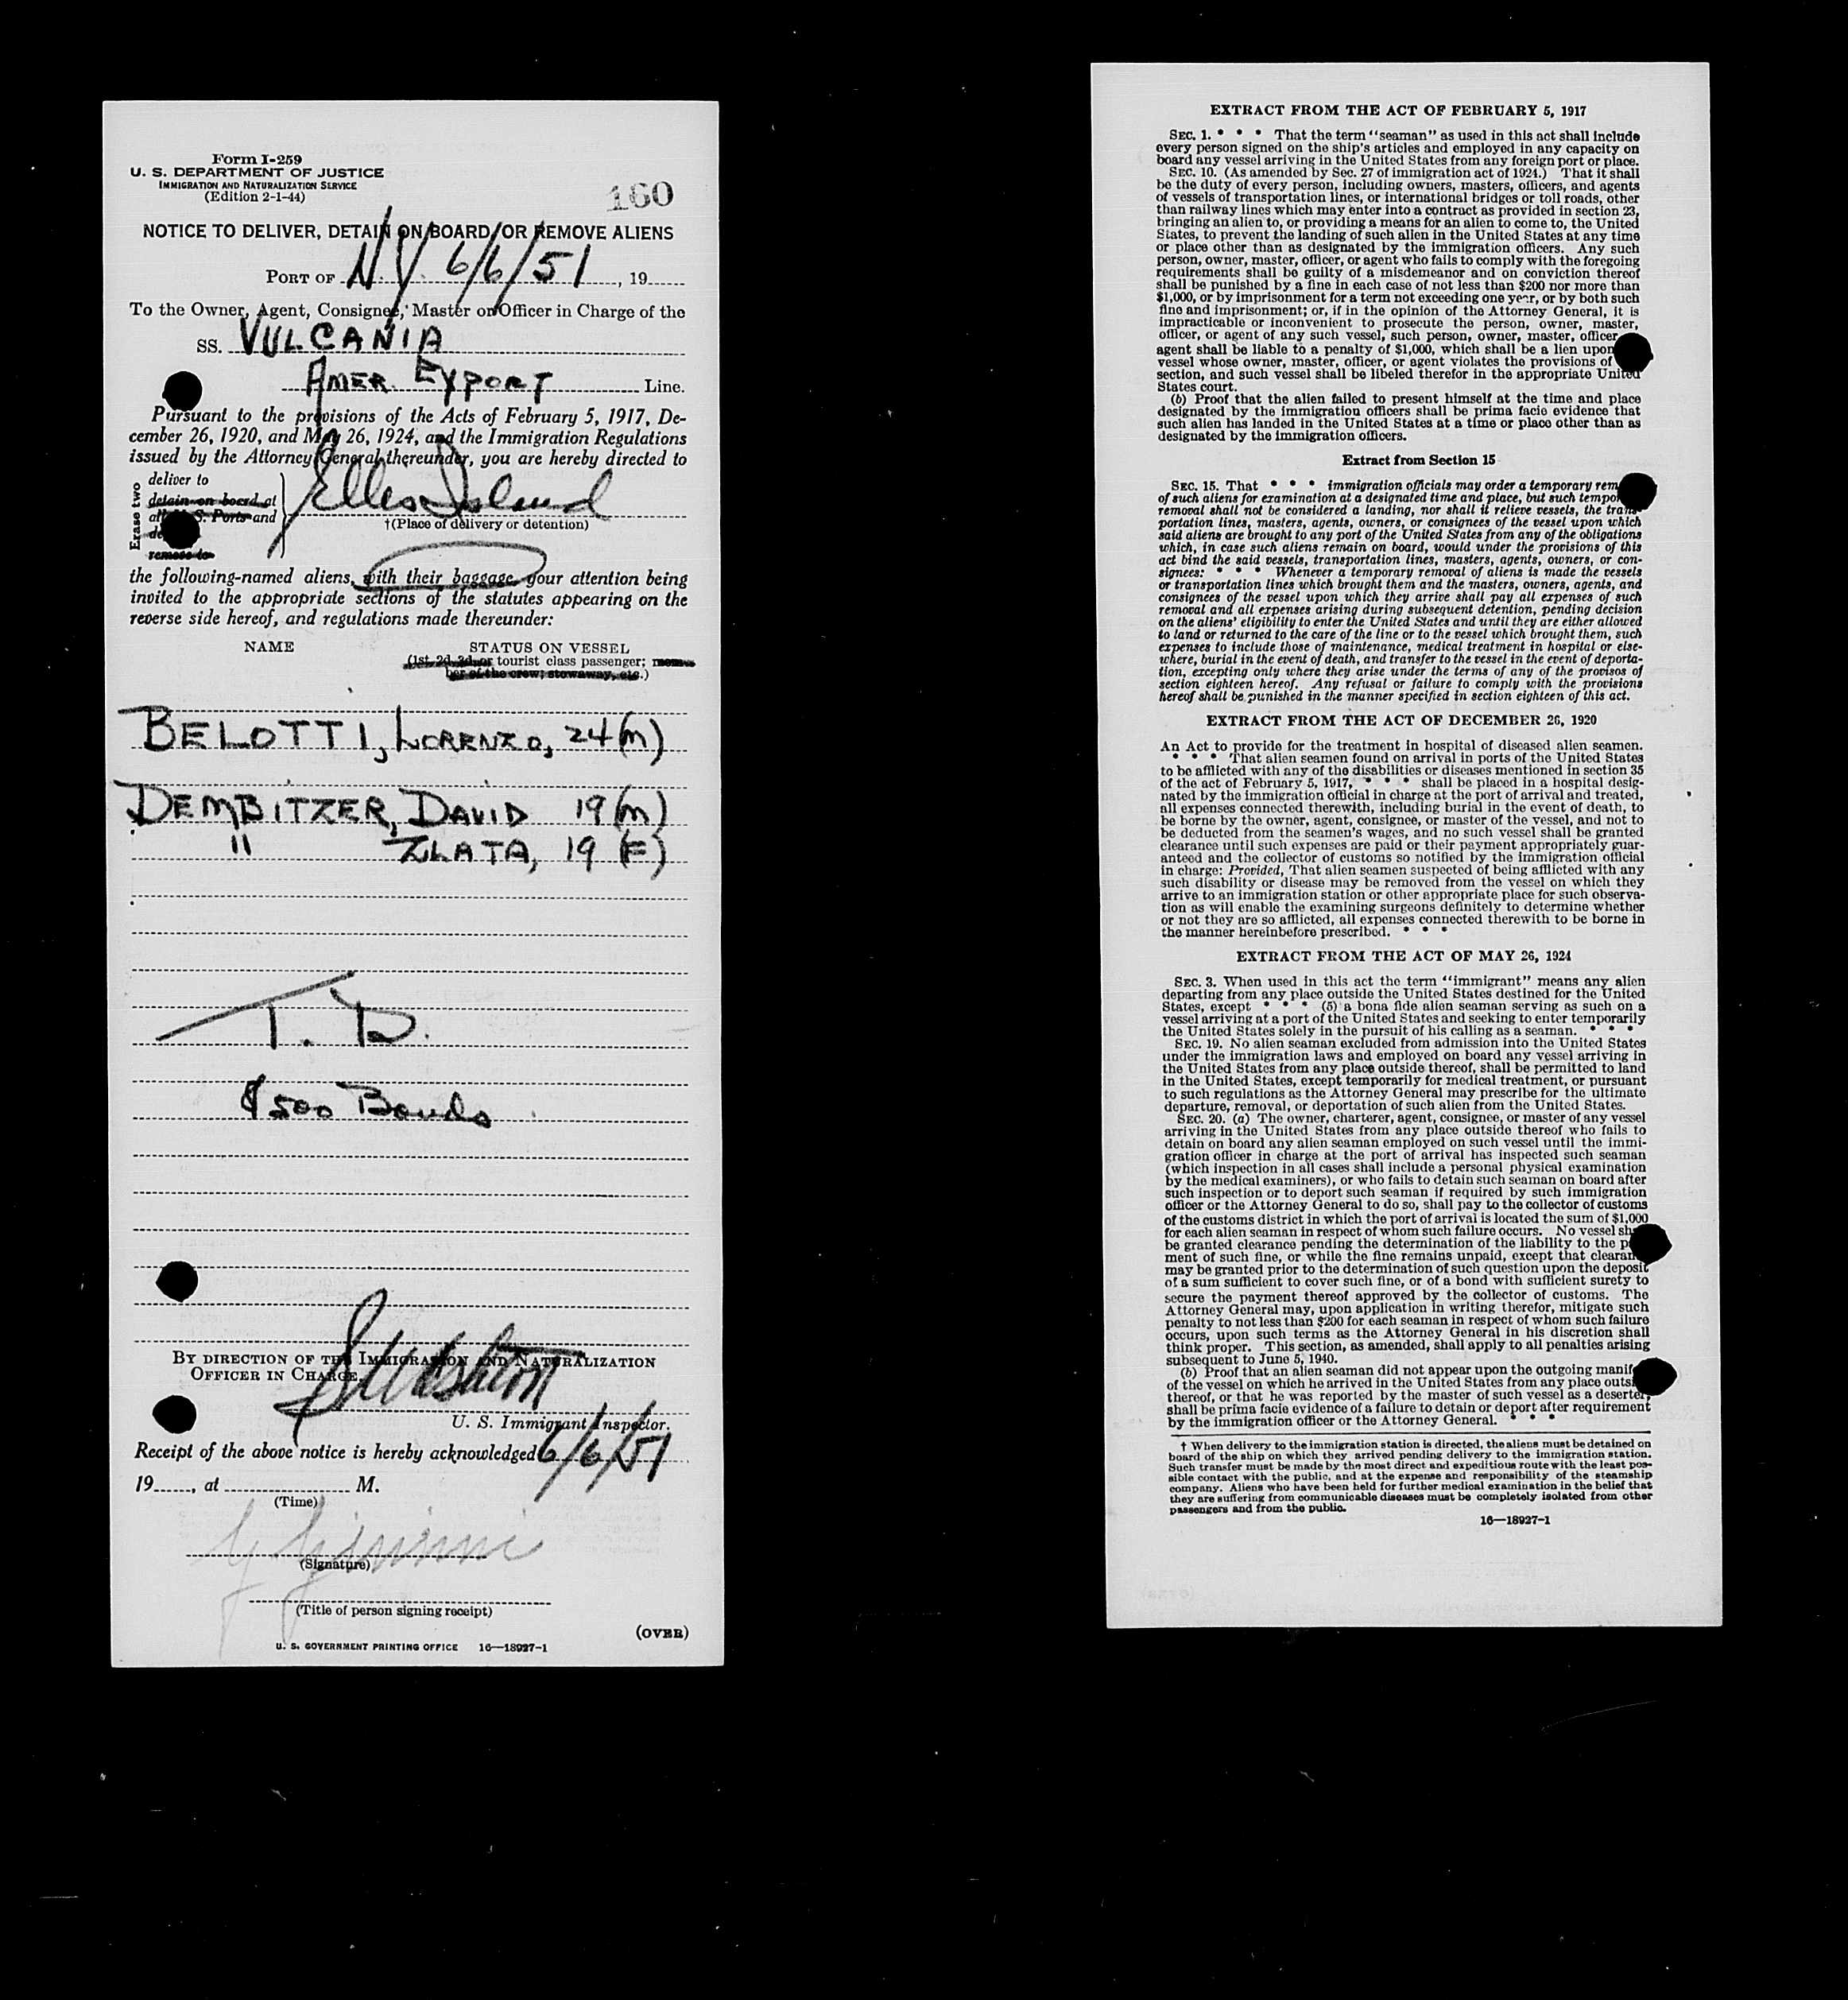 Form I-259
U. S. DEPARTMENT OF JUSTICE
IMMIGRATION AND NATURALIZATION SERVICE
(Edition 2-1-44)
160
NOTICE TO DELIVER, DETAIN ON BOARD, OR REMOVE ALIENS
PORT OF N.Y. 6/6/51, 19
To the Owner, Agent, Consignee, Master or Officer in Charge of the
SS. VULCANIA
AMER. EXPORT Line.
Pursuant to the provisions of the Acts of February 5, 1917, De-
cember 26, 1920, and May 26, 1924, and the Immigration Regulations
issued by the Attorney General thereunder, you are hereby directed to
Erase two
deliver to
detain on board at
all U. S. Ports and
remove to
Ellis Island
†(Place of delivery or detention)
the following-named aliens, with their baggage, your attention being
invited to the appropriate sections of the statutes appearing on the
reverse side hereof, and regulations made thereunder:
NAME STATUS ON VESSEL
(1st, 2d, 3d, or tourist class passenger; mem-
ber of the crew; stowaway, etc.)
BELOTTI, LORENZO, 24 (M)
DEMBITZER, DAVID 19 (M)
" ZLATA, 19 (F)
T. D.
$500 Bonds
BY DIRECTION OF THE IMMIGRATION AND NATURALIZATION
OFFICER IN CHARGE.
U. S. Immigrant Inspector.
Receipt of the above notice is hereby acknowledged 6/6/51
19, at M.
(Time)
(Signature)
(Title of person signing receipt)
(OVER)
U. S. GOVERNMENT PRINTING OFFICE 16—18927-1
EXTRACT FROM THE ACT OF FEBRUARY 5, 1917
SEC. 1. * * * That the term "seaman" as used in this act shall include
every person signed on the ship's articles and employed in any capacity on
board any vessel arriving in the United States from any foreign port or place.
SEC. 10. (As amended by Sec. 27 of immigration act of 1924.) That it shall
be the duty of every person, including owners, masters, officers, and agents
of vessels of transportation lines, or international bridges or toll roads, other
than railway lines which may enter into a contract as provided in section 23,
bringing an alien to, or providing a means for an alien to come to, the United
States, to prevent the landing of such alien in the United States at any time
or place other than as designated by the immigration officers. Any such
person, owner, master, officer, or agent who fails to comply with the foregoing
requirements shall be guilty of a misdemeanor and on conviction thereof
shall be punished by a fine in each case of not less than $200 nor more than
$1,000, or by imprisonment for a term not exceeding one year, or by both such
fine and imprisonment; or, if in the opinion of the Attorney General, it is
impracticable or inconvenient to prosecute the person, owner, master,
officer, or agent of any such vessel, such person, owner, master, officer
agent shall be liable to a penalty of $1,000, which shall be a lien upon
vessel whose owner, master, officer, or agent violates the provisions of
section, and such vessel shall be libeled therefor in the appropriate United
States court.
(b) Proof that the alien failed to present himself at the time and place
designated by the immigration officers shall be prima facie evidence that
such alien has landed in the United States at a time or place other than as
designated by the immigration officers.
Extract from Section 15
SEC. 15. That * * * immigration officials may order a temporary rem
of such aliens for examination at a designated time and place, but such tempor
removal shall not be considered a landing, nor shall it relieve vessels, the trans-
portation lines, masters, agents, owners, or consignees of the vessel upon which
said aliens are brought to any port of the United States from any of the obligations
which, in case such aliens remain on board, would under the provisions of this
act bind the said vessels, transportation lines, masters, agents, owners, or con-
signees: * * * Whenever a temporary removal of aliens is made the vessels
or transportation lines which brought them and the masters, owners, agents, and
consignees of the vessel upon which they arrive shall pay all expenses of such
removal and all expenses arising during subsequent detention, pending decision
on the aliens' eligibility to enter the United States and until they are either allowed
to land or returned to the care of the line or to the vessel which brought them, such
expenses to include those of maintenance, medical treatment in hospital or else-
where, burial in the event of death, and transfer to the vessel in the event of deporta-
tion, excepting only where they arise under the terms of any of the provisos of
section eighteen hereof. Any refusal or failure to comply with the provisions
hereof shall be punished in the manner specified in section eighteen of this act.
EXTRACT FROM THE ACT OF DECEMBER 26, 1920
An Act to provide for the treatment in hospital of diseased alien seamen.
* * * That alien seamen found on arrival in ports of the United States
to be afflicted with any of the disabilities or diseases mentioned in section 35
of the act of February 5, 1917, * * * shall be placed in a hospital desig-
nated by the immigration official in charge at the port of arrival and treated,
all expenses connected therewith, including burial in the event of death, to
be borne by the owner, agent, consignee, or master of the vessel, and not to
be deducted from the seamen's wages, and no such vessel shall be granted
clearance until such expenses are paid or their payment appropriately guar-
anteed and the collector of customs so notified by the immigration official
in charge: Provided, That alien seamen suspected of being afflicted with any
such disability or disease may be removed from the vessel on which they
arrive to an immigration station or other appropriate place for such observa-
tion as will enable the examining surgeons definitely to determine whether
or not they are so afflicted, all expenses connected therewith to be borne in
the manner hereinbefore prescribed. * * *
EXTRACT FROM THE ACT OF MAY 26, 1924
SEC. 3. When used in this act the term "immigrant" means any alien
departing from any place outside the United States destined for the United
States, except * * * (5) a bona fide alien seaman serving as such on a
vessel arriving at a port of the United States and seeking to enter temporarily
the United States solely in the pursuit of his calling as a seaman. * * *
SEC. 19. No alien seaman excluded from admission into the United States
under the immigration laws and employed on board any vessel arriving in
the United States from any place outside thereof, shall be permitted to land
in the United States, except temporarily for medical treatment, or pursuant
to such regulations as the Attorney General may prescribe for the ultimate
departure, removal, or deportation of such alien from the United States.
SEC. 20. (a) The owner, charterer, agent, consignee, or master of any vessel
arriving in the United States from any place outside thereof who fails to
detain on board any alien seaman employed on such vessel until the immi-
gration officer in charge at the port of arrival has inspected such seaman
(which inspection in all cases shall include a personal physical examination
by the medical examiners), or who fails to detain such seaman on board after
such inspection or to deport such seaman if required by such immigration
officer or the Attorney General to do so, shall pay to the collector of customs
of the customs district in which the port of arrival is located the sum of $1,000
for each alien seaman in respect of whom such failure occurs. No vessel sh
be granted clearance pending the determination of the liability to the p
ment of such fine, or while the fine remains unpaid, except that clearan
may be granted prior to the determination of such question upon the deposit
of a sum sufficient to cover such fine, or of a bond with sufficient surety to
secure the payment thereof approved by the collector of customs. The
Attorney General may, upon application in writing therefor, mitigate such
penalty to not less than $200 for each seaman in respect of whom such failure
occurs, upon such terms as the Attorney General in his discretion shall
think proper. This section, as amended, shall apply to all penalties arising
subsequent to June 5, 1940.
(b) Proof that an alien seaman did not appear upon the outgoing manif
of the vessel on which he arrived in the United States from any place outsi
thereof, or that he was reported by the master of such vessel as a deserter,
shall be prima facie evidence of a failure to detain or deport after requirement
by the immigration officer or the Attorney General. * * *
† When delivery to the immigration station is directed, the aliens must be detained on
board of the ship on which they arrived pending delivery to the immigration station.
Such transfer must be made by the most direct and expeditious route with the least pos-
sible contact with the public, and at the expense and responsibility of the steamship
company. Aliens who have been held for further medical examination in the belief that
they are suffering from communicable diseases must be completely isolated from other
passengers and from the public.
16—18927-1